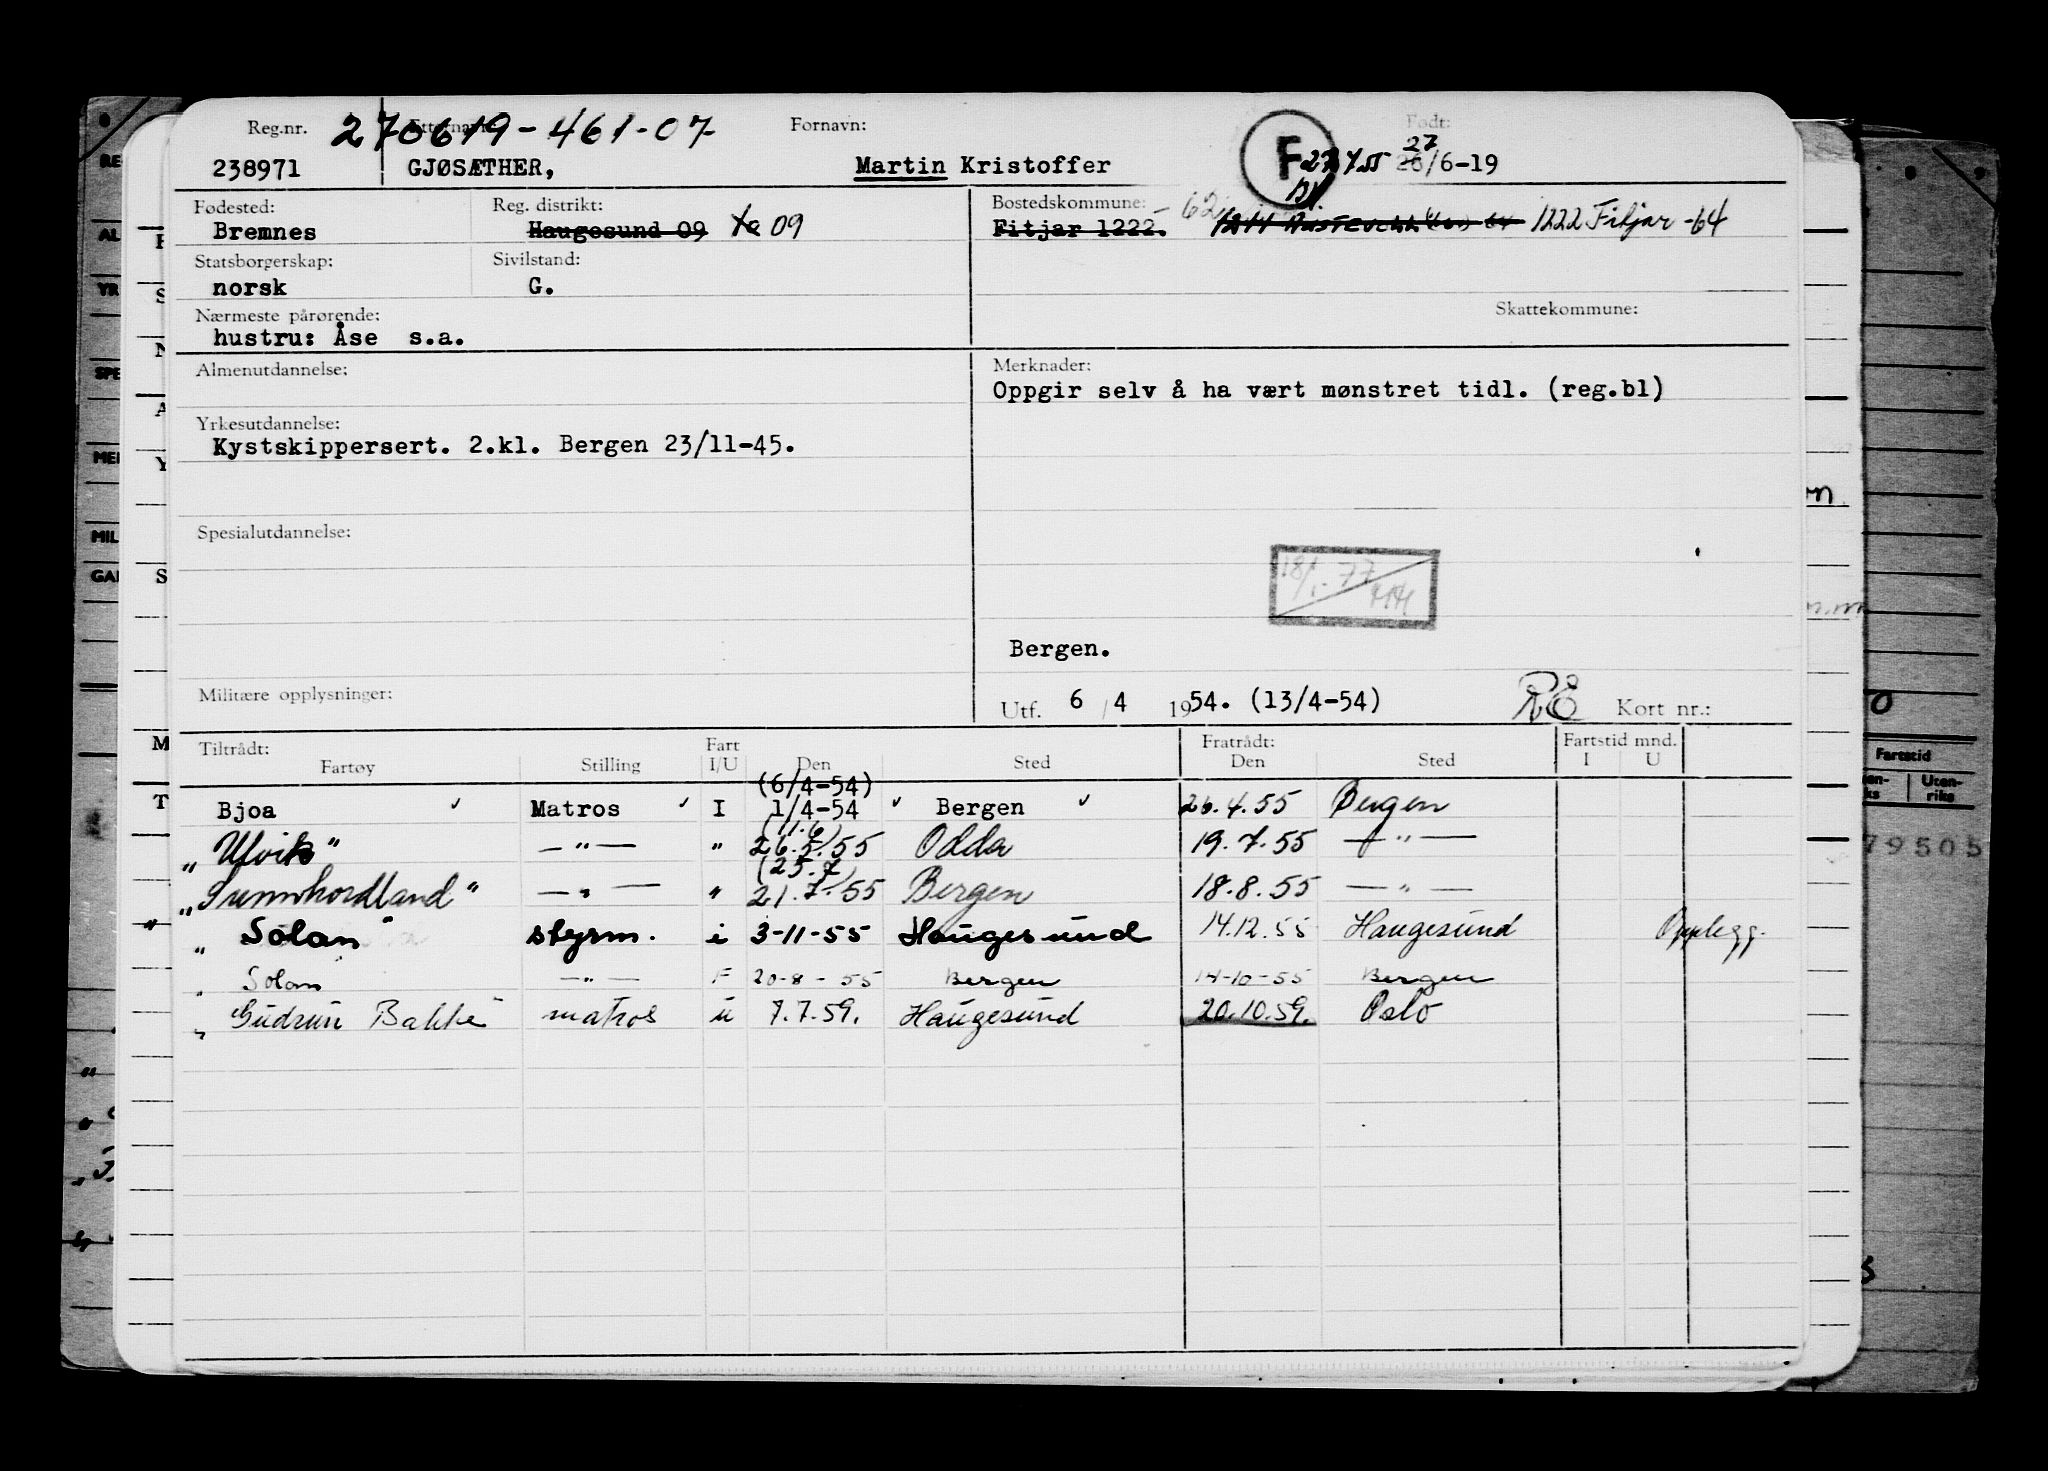 Reg.nr. 270619-461-07 Etternavn: Fornavn: F Født:
238971 GJØSÆTHER, Martin Kristoffer 27/4 55 26/6-19 27
Fødested: Reg. distrikt: Bostedskommune:
Bremnes Haugesund 09 09 Fitjar 1222. -62 1222 Fitjar -64
Statsborgerskap: Sivilstand:
norsk G.
Nærmeste pårørende: Skattekommune:
hustru: Åse s.a.
Almenutdannelse: Merknader:
Oppgir selv å ha vært mønstret tidl. (reg.bl)
Yrkesutdannelse:
Kystskippersert. 2.kl. Bergen 23/11-45.
Spesialutdannelse:
18/1-77
Bergen.
Militære opplysninger: Utf. 6 / 4 1954. (13/4-54) RE Kort nr.:
Tiltrådt: Fart Fratrådt: Fartstid mnd.
Fartøy Stilling I/U Den Sted Den Sted I U
(6/4-54)
Bjoa Matros I 1/4-54 Bergen 26.4.55 Bergen
(11.6)
"Ulvik" —"— " 26.5.55 Odda 19.7.55 —"—
(25.7)
"Sunnhordland" —"— " 21.7.55 Bergen 18.8.55 —"—
" "Solan" styrm. i 3-11-55 Haugesund 14.12.55 Haugesund Opplegg.
" Solan —"— F 20-8-55 Bergen 14-10-55 Bergen
"Gudrun Bakke" matros u 7.7.59. Haugesund 20.10.59. Oslo
Fartstid
Uten-
riks
79505